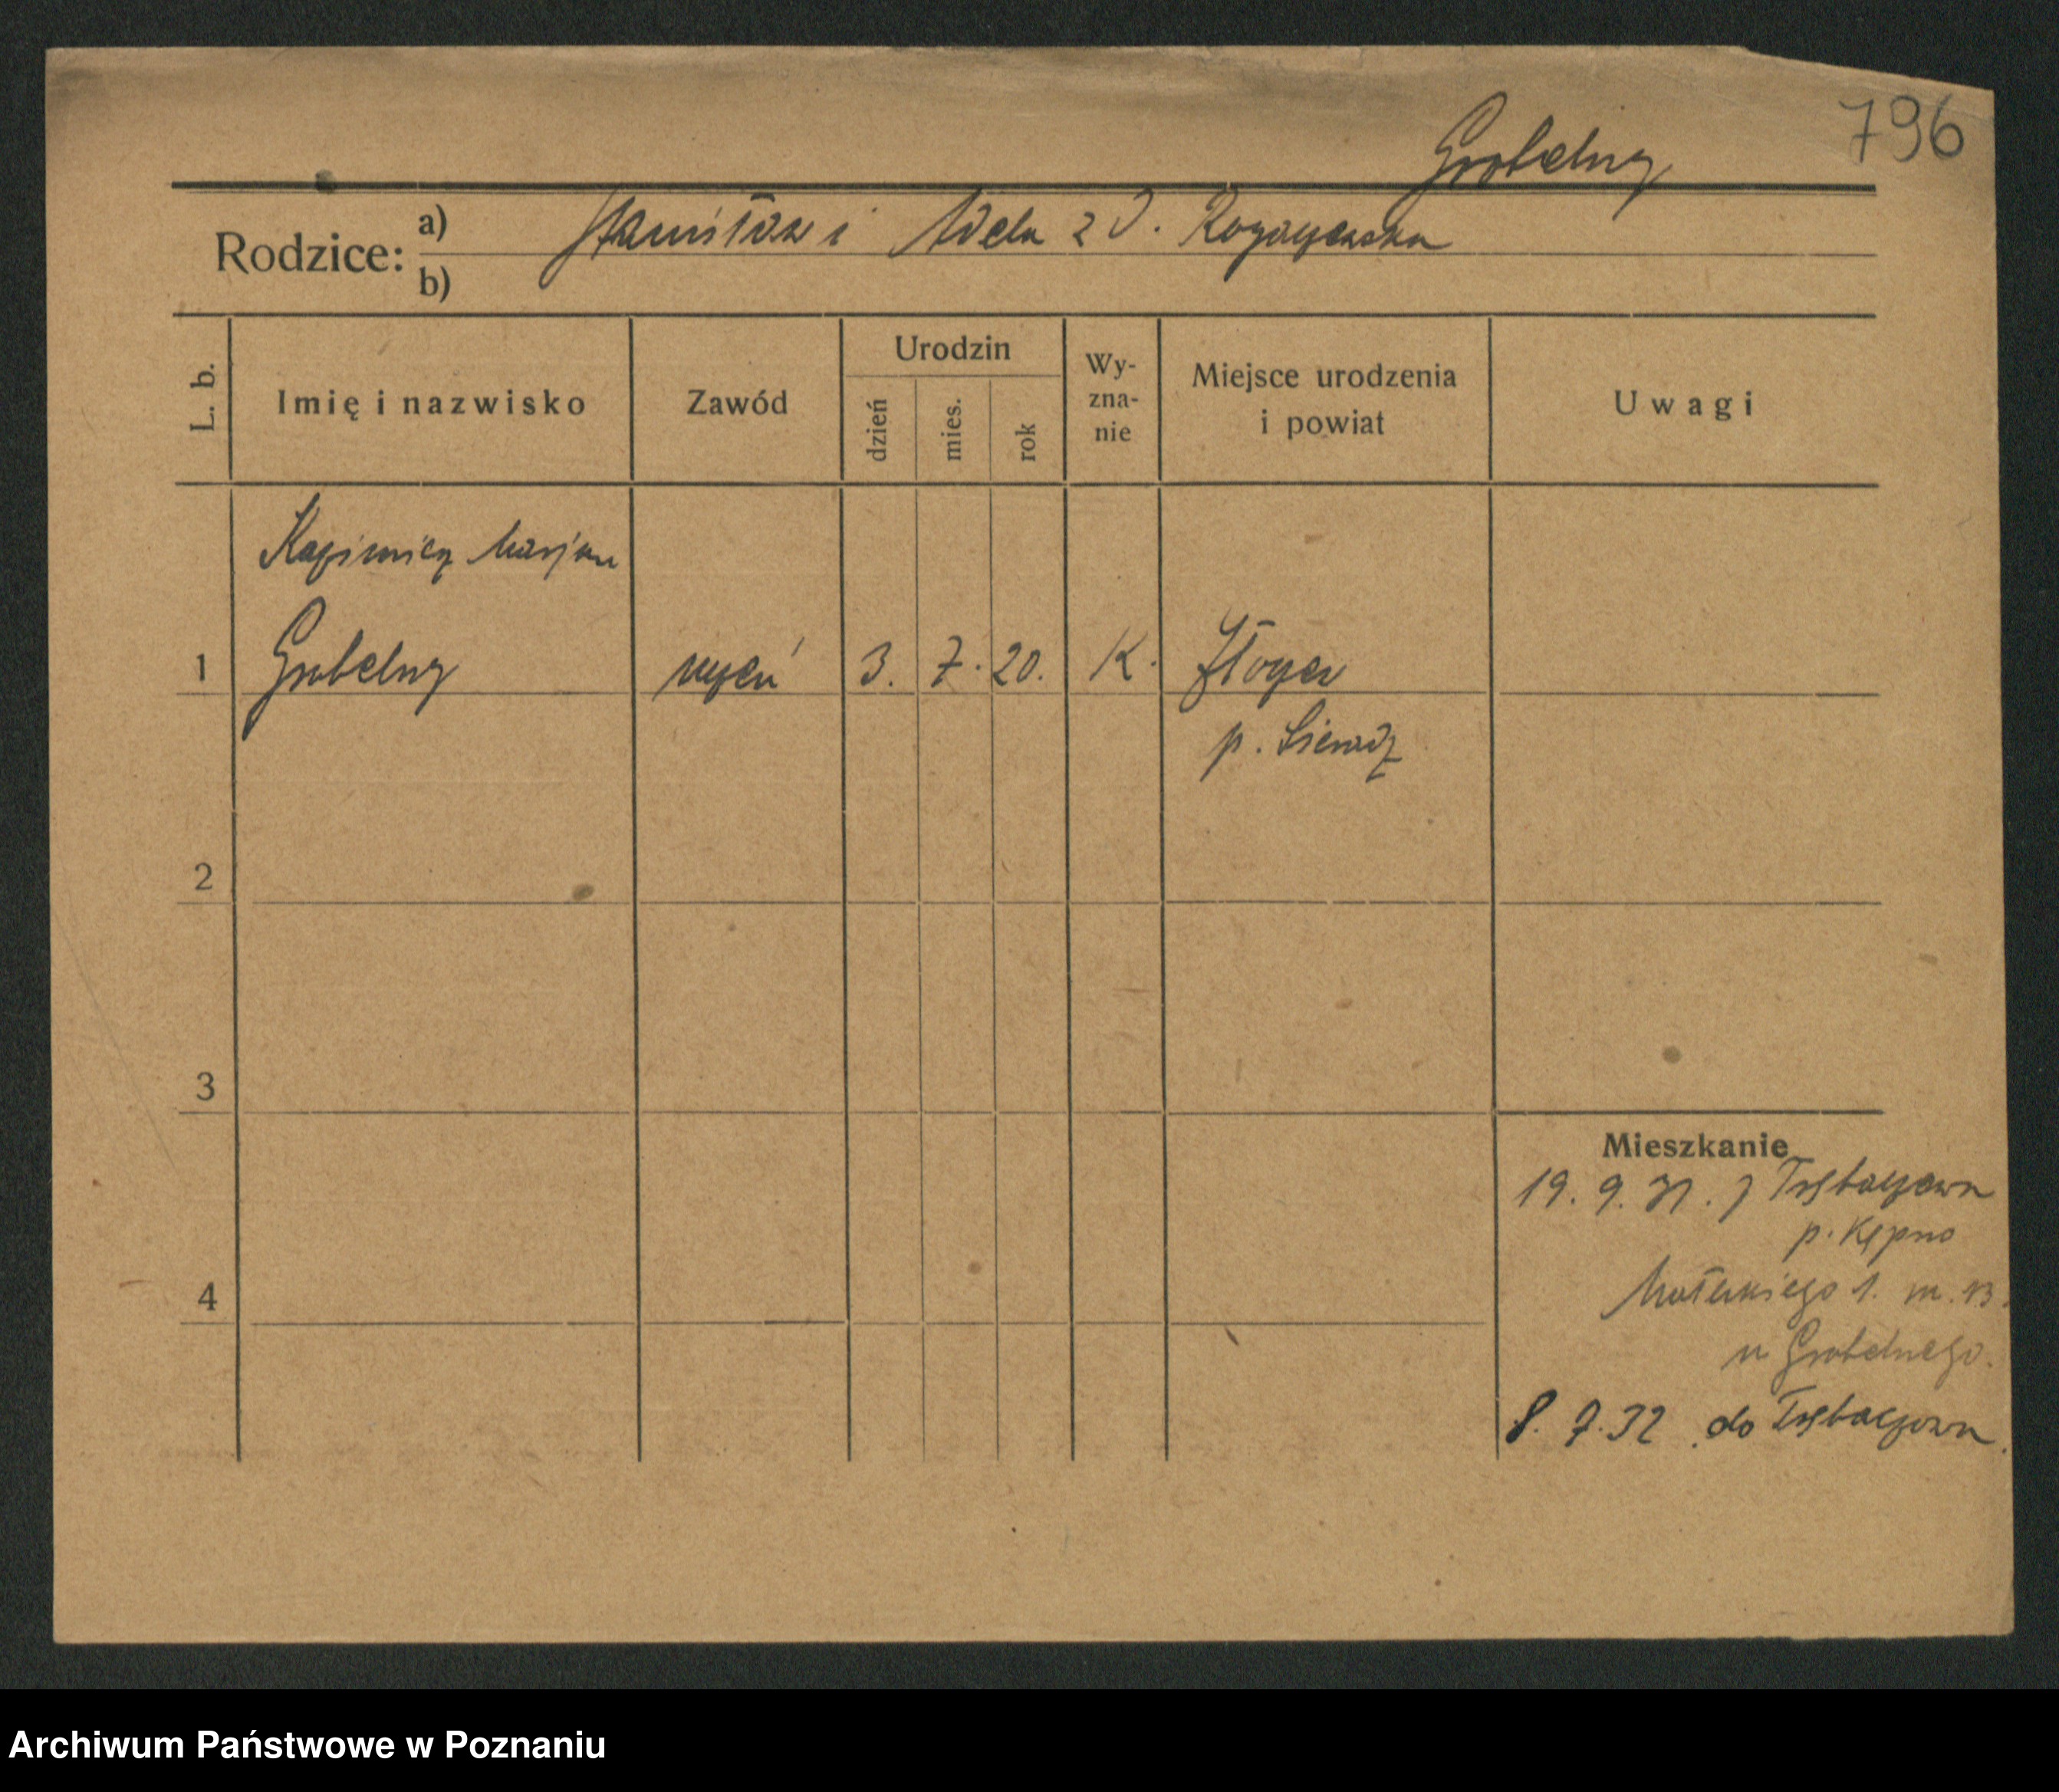 796
Grobelny
Rodzice: a) Stanisław i Adela z d.
b)
L. b.
Imię i nazwisko
Zawód
Urodzin
dzień
mies.
rok
Wy-
zna-
nie
Miejsce urodzenia
i powiat
Uwagi
Kazimierz Marjan
1 Grobelny uczeń 3. 7. 20. K. Złoczew
p. Sieradz
2
3
4
Mieszkanie
19. 9. 31. z Trębaczowa
p. Kępno
Małeckiego 1. m. 13.
u Grobelnego.
8. 7. 32 do Trębaczowa.
Archiwum Państwowe w Poznaniu